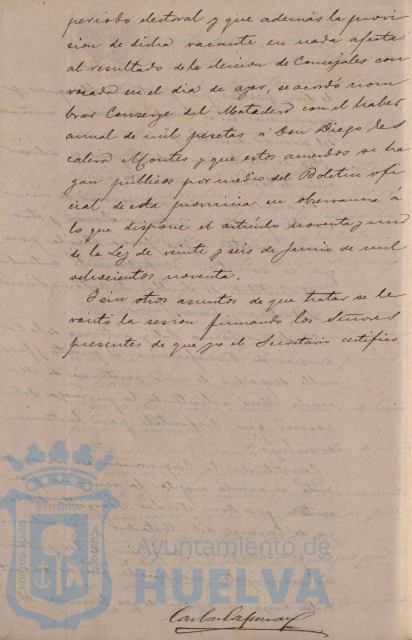 periodo electoral y que además la provi
sion de dicha vacante en nada afecta
al resultado de la eleccion de Concejales con
vocada en el dia de ayer, se acordó nom
brar Conserge del Matadero con el haber
anual de mil pesetas á Don Diego Es
calera Montes y que estos acuerdos se ha
gan públicos por medio del Boletin ofi
cial de esta provincia en observancia á
lo que dispone el artículo noventa y uno
de la Ley de veinte y seis de Junio de mil
ochocientos noventa.
Y sin otros asuntos de que tratar se le
vantó la sesion firmando los Señores
presentes de que yo el Secretario certifico
PORTUS MARIS
ET TERRÆ
CUSTODIA
Ayuntamiento de
HUELVA